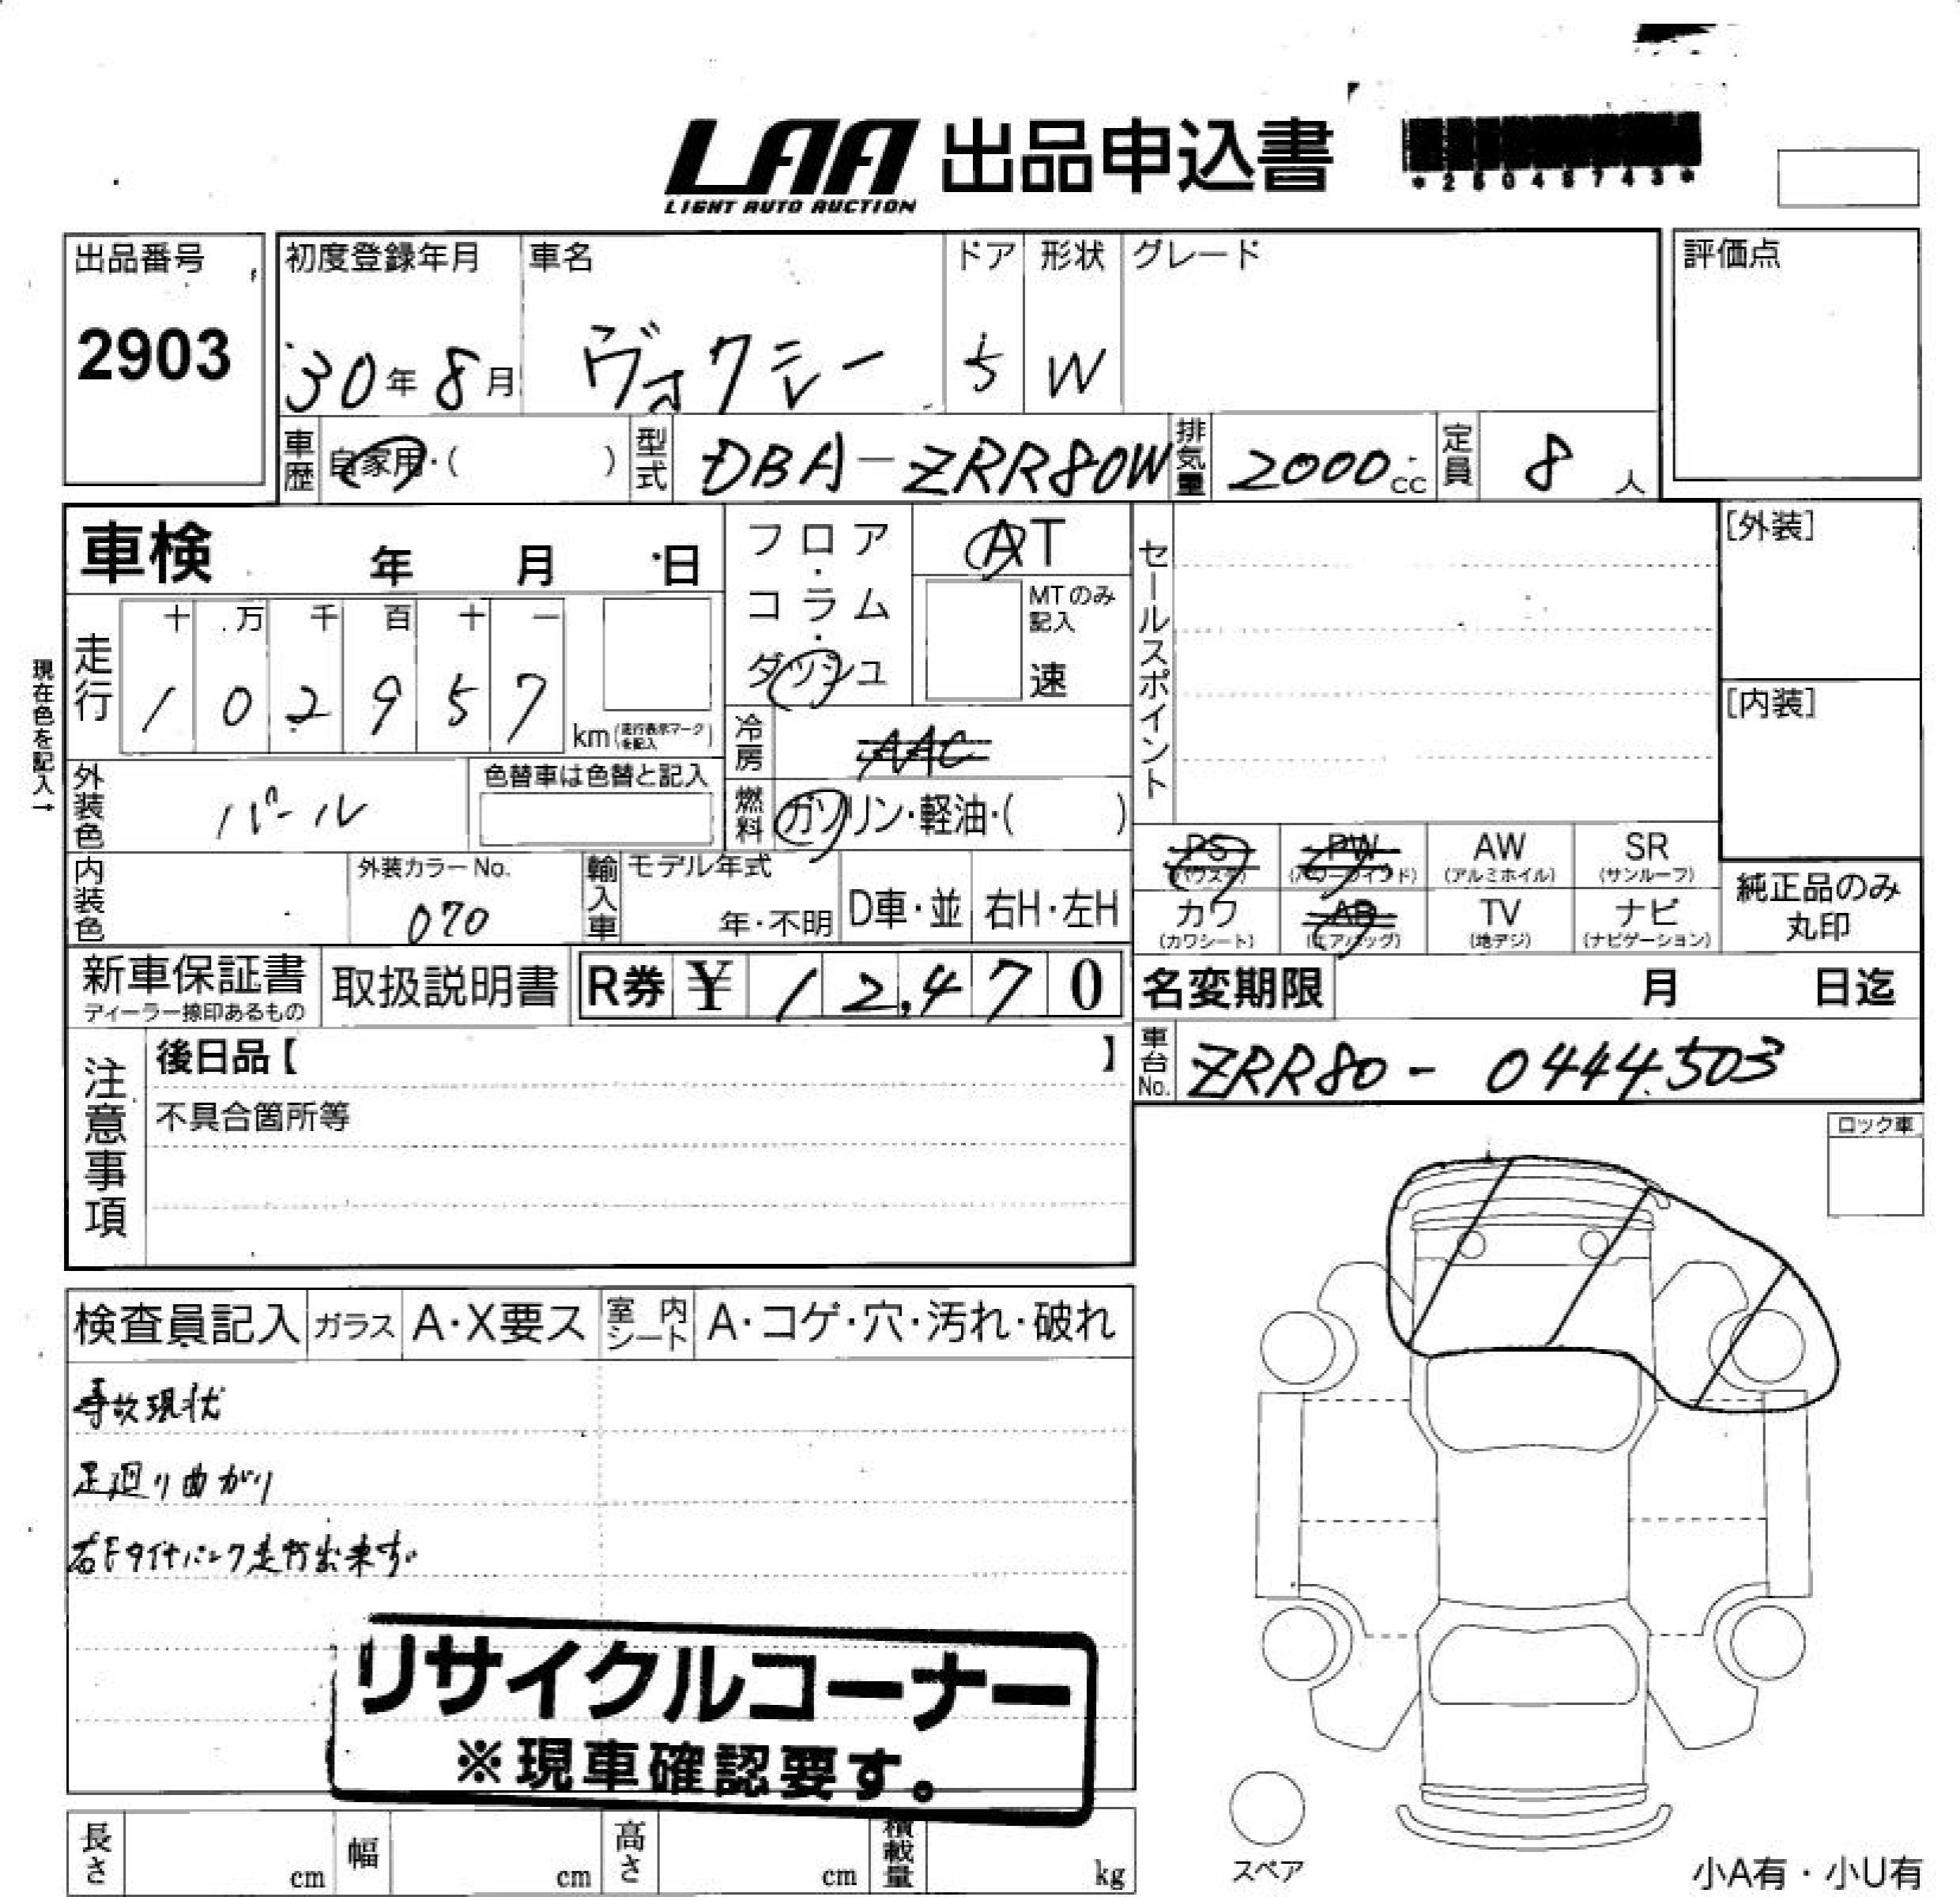 LAA 出品申込書
LIGHT AUTO AUCTION
出品番号 初度登録年月 車名 ドア 形状 グレード 評価点
2903 30年 8月 ヴォクシー 5 W
車歴 自家用・( ) 型式 DBA-ZRR80W 排気量 2000cc 定員 8 人
車検 年 月 日 フロア・コラム・ダッシュ AT セールスポイント [外装]
MTのみ記入 速
現在色を記入→
走行 十 万 千 百 十 一
1 0 2 9 5 7 km (走行表示マークを記入)
[内装]
冷房 AAC
外装色 パール 色替車は色替と記入 燃料 ガソリン・軽油・( )
PS (パワステ) PW (パワーウインド) AW (アルミホイル) SR (サンルーフ)
内装色 外装カラーNo. 070 輸入車 モデル年式 年・不明 D車・並 右H・左H
カワ (カワシート) AB (エアバッグ) TV (地デジ) ナビ (ナビゲーション) 純正品のみ丸印
新車保証書 ディーラー捺印あるもの 取扱説明書 R券 ¥ 12,470 名変期限 月 日迄
注意事項 後日品【 】 車台No. ZRR80-0444503
不具合箇所等
ロック車
検査員記入 ガラス A・X要ス 室内シート A・コゲ・穴・汚れ・破れ
事故現状
足廻り曲がり
右Fタイヤパンク走行出来ず。
リサイクルコーナー
※現車確認要す。
長さ cm 幅 cm 高さ cm 積載量 kg
スペア
小A有・小U有